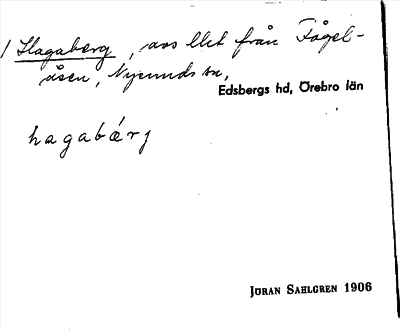 / Hagaberg, avs lht från Fågel-
åsen, Nysunds sn,
Edsbergs hd, Örebro län
hagabärj
Jöran Sahlgren 1906